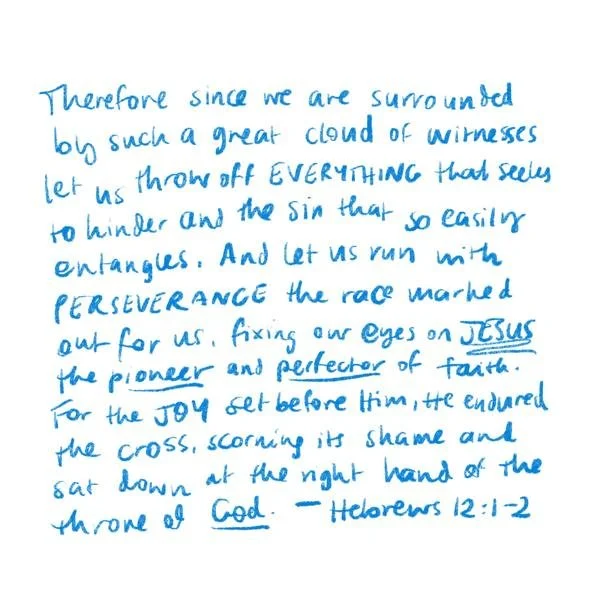 Therefore since we are surrounded
by such a great cloud of witnesses
let us throw off EVERYTHING that seeks
to hinder and the sin that so easily
entangles. And let us run with
PERSEVERANCE the race marked
out for us, fixing our eyes on JESUS
the pioneer and perfector of faith.
For the JOY set before Him, He endured
the cross, scorning its shame and
sat down at the right hand of the
throne of God. - Hebrews 12:1-2